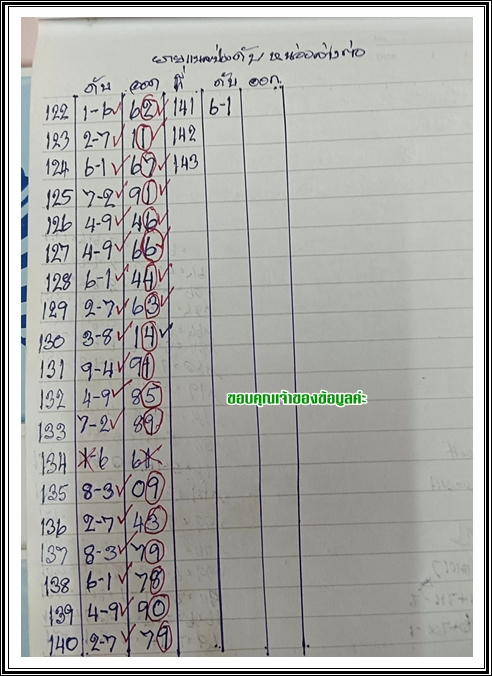 ดับ ออก ที่ ดับ ออก
122 1-6 62 141 6-1
123 2-7 11 142
124 6-1 67 143
125 7-2 91
126 4-9 46
127 4-9 66
128 6-1 44
129 2-7 63
130 3-8 14
131 9-4 91
132 4-9 85
ขอบคุณเจ้าของข้อมูลค่ะ
133 7-2 89
134 -6 6
135 8-3 09
136 2-7 43
137 8-3 79
138 6-1 78
139 4-9 90
140 2-7 79